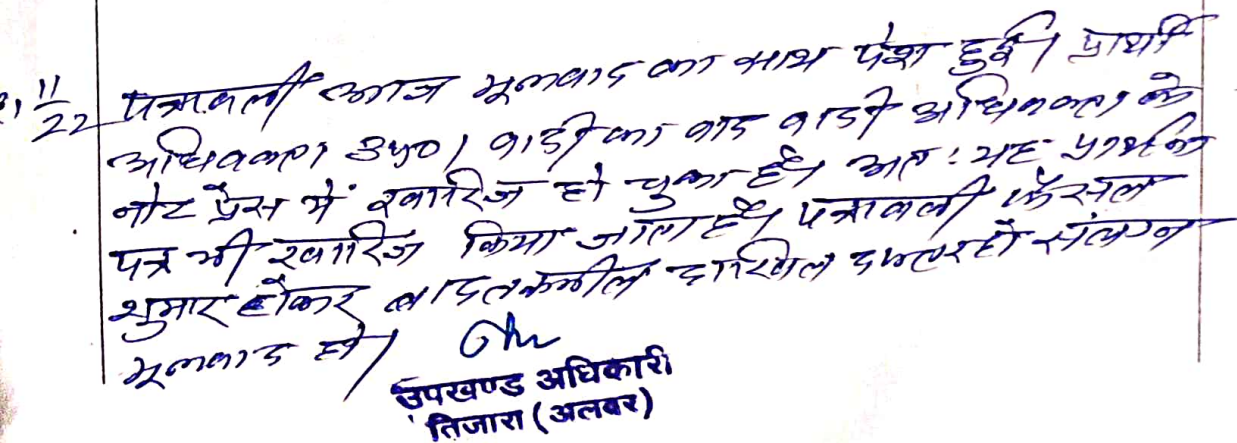 11/22 पत्रावली आज मूलवाद का साथ पेश हुई। प्रार्थी
अधिवक्ता उप0। वादी का वाद वादी अधिवक्ता के
नोट प्रेस में खारिज हो चुका है। अतः यह प्रार्थना
पत्र भी खारिज किया जाता है। पत्रावली फैसल
शुमार होकर बादतकमील दाखिल दफ्तर हो संलग्न
मूलवाद हो।
उपखण्ड अधिकारी
तिजारा (अलवर)